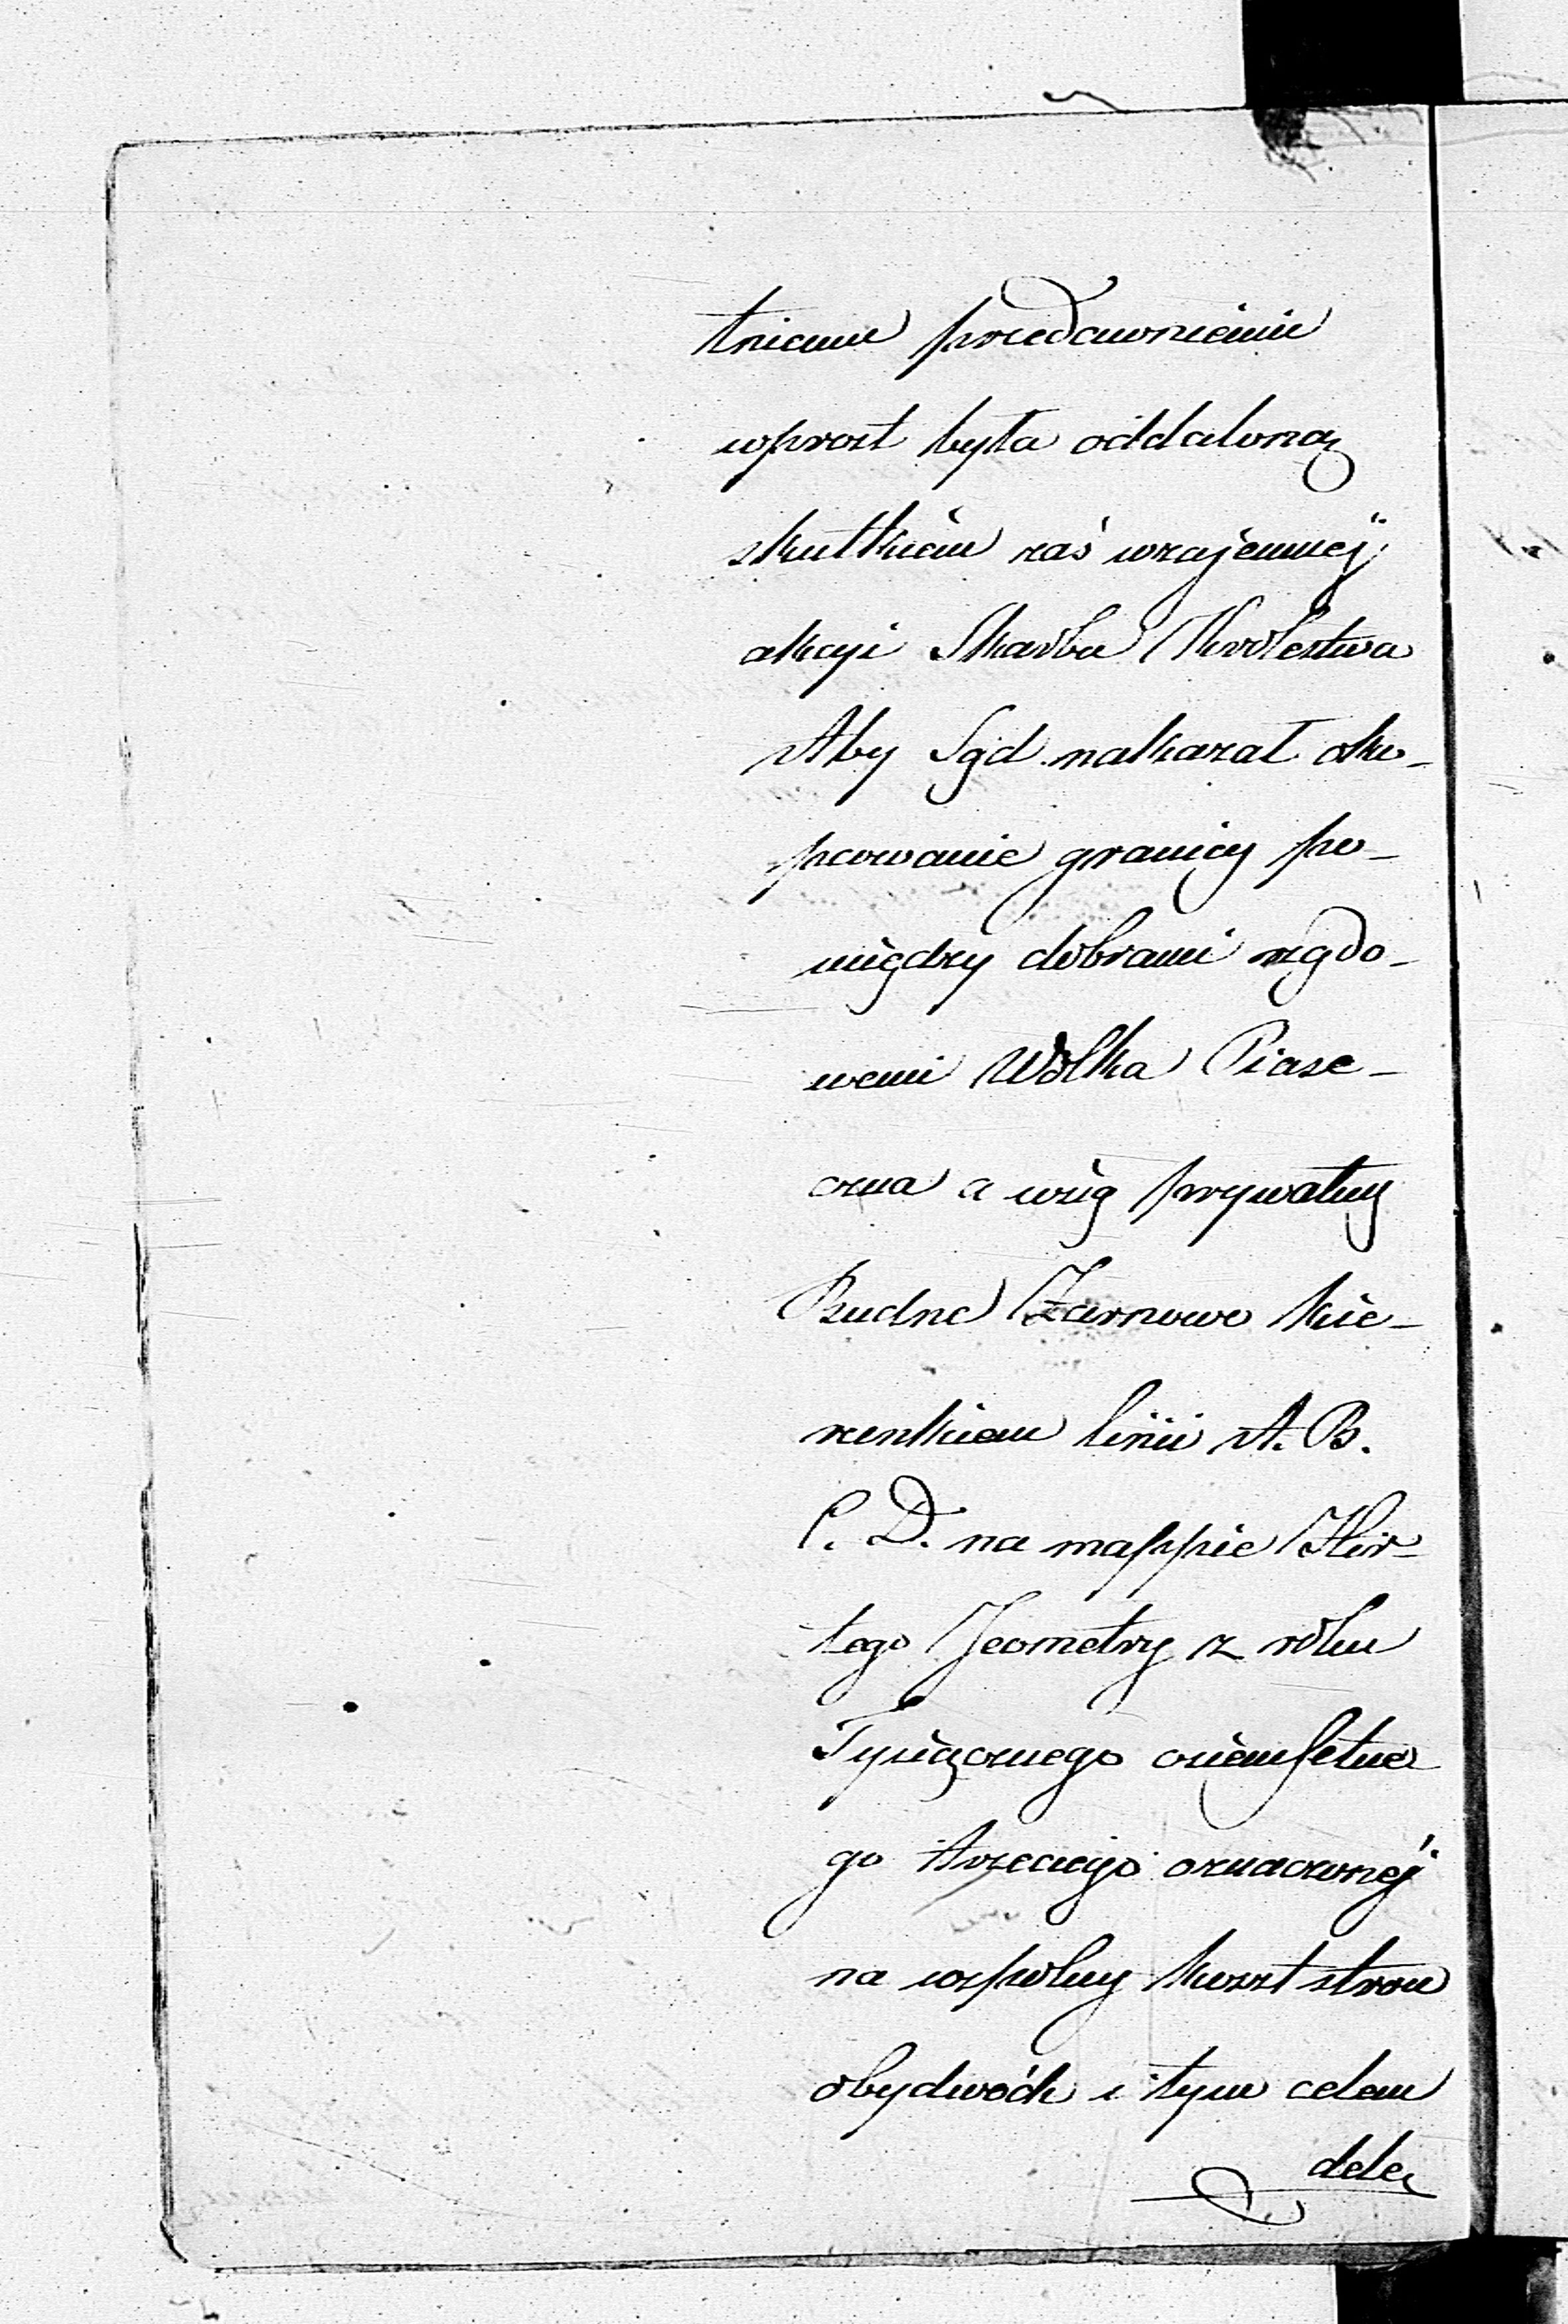 tniemu przedawnieniu
wprost była oddaloną
skutkiem zaś wzajemnej
akcyi Skarbu Królestwa
Aby Sąd nakazał oko-
pcowanie granicy po-
między dobrami rządo-
wemi Wólka Piase-
czna a wsią prywatną
Rudno Żarnowo kie-
runkiem linii A. B.
C. D. na mappie
tego Jeometry z roku
Tysiącznego ośemsetne
go trzeciego oznaczonej
na wspólny koszt stron
obydwóch i tym celem
dele